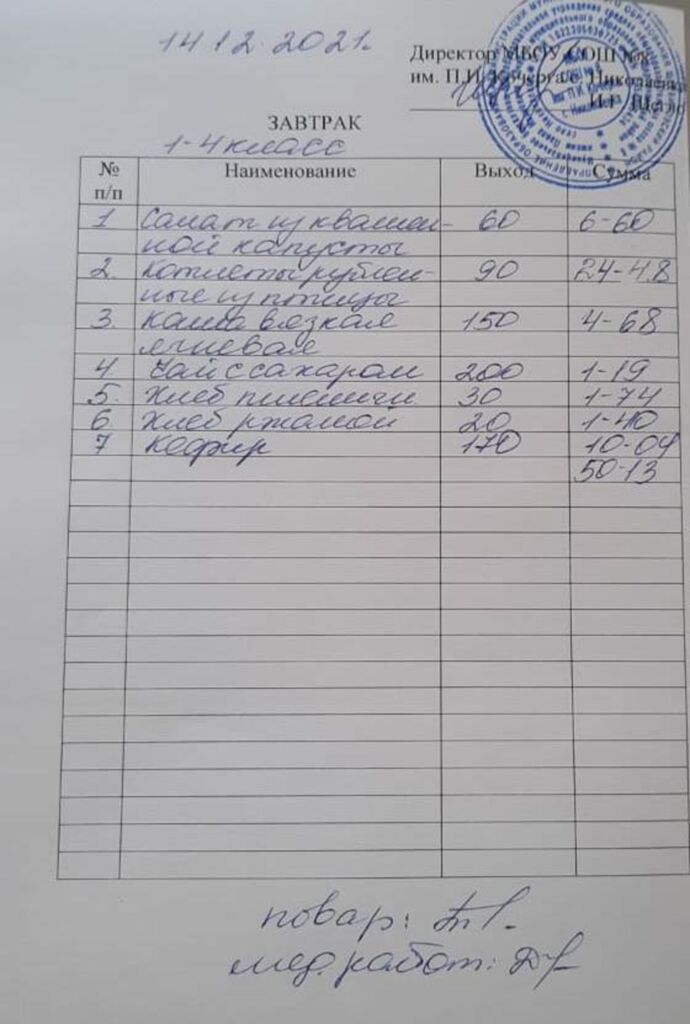 14.12.2021.
Директор МБОУ СОШ №8
им. П.И. Кочерга с. Николаенко
И.Г.
ЗАВТРАК
1-4 класс
№ п/п Наименование Выход Сумма
1 Салат из квашен- 60 6-60
ной капусты
2. Котлеты рублен- 90 24-48
ные из птицы
3. Каша вязкая 150 4-68
ячневая
4. Чай с сахаром 200 1-19
5. Хлеб пшенич 30 1-74
6. Хлеб ржаной 20 1-40
7 Кефир 170 10-04
50-13
повар:
мед. работ: